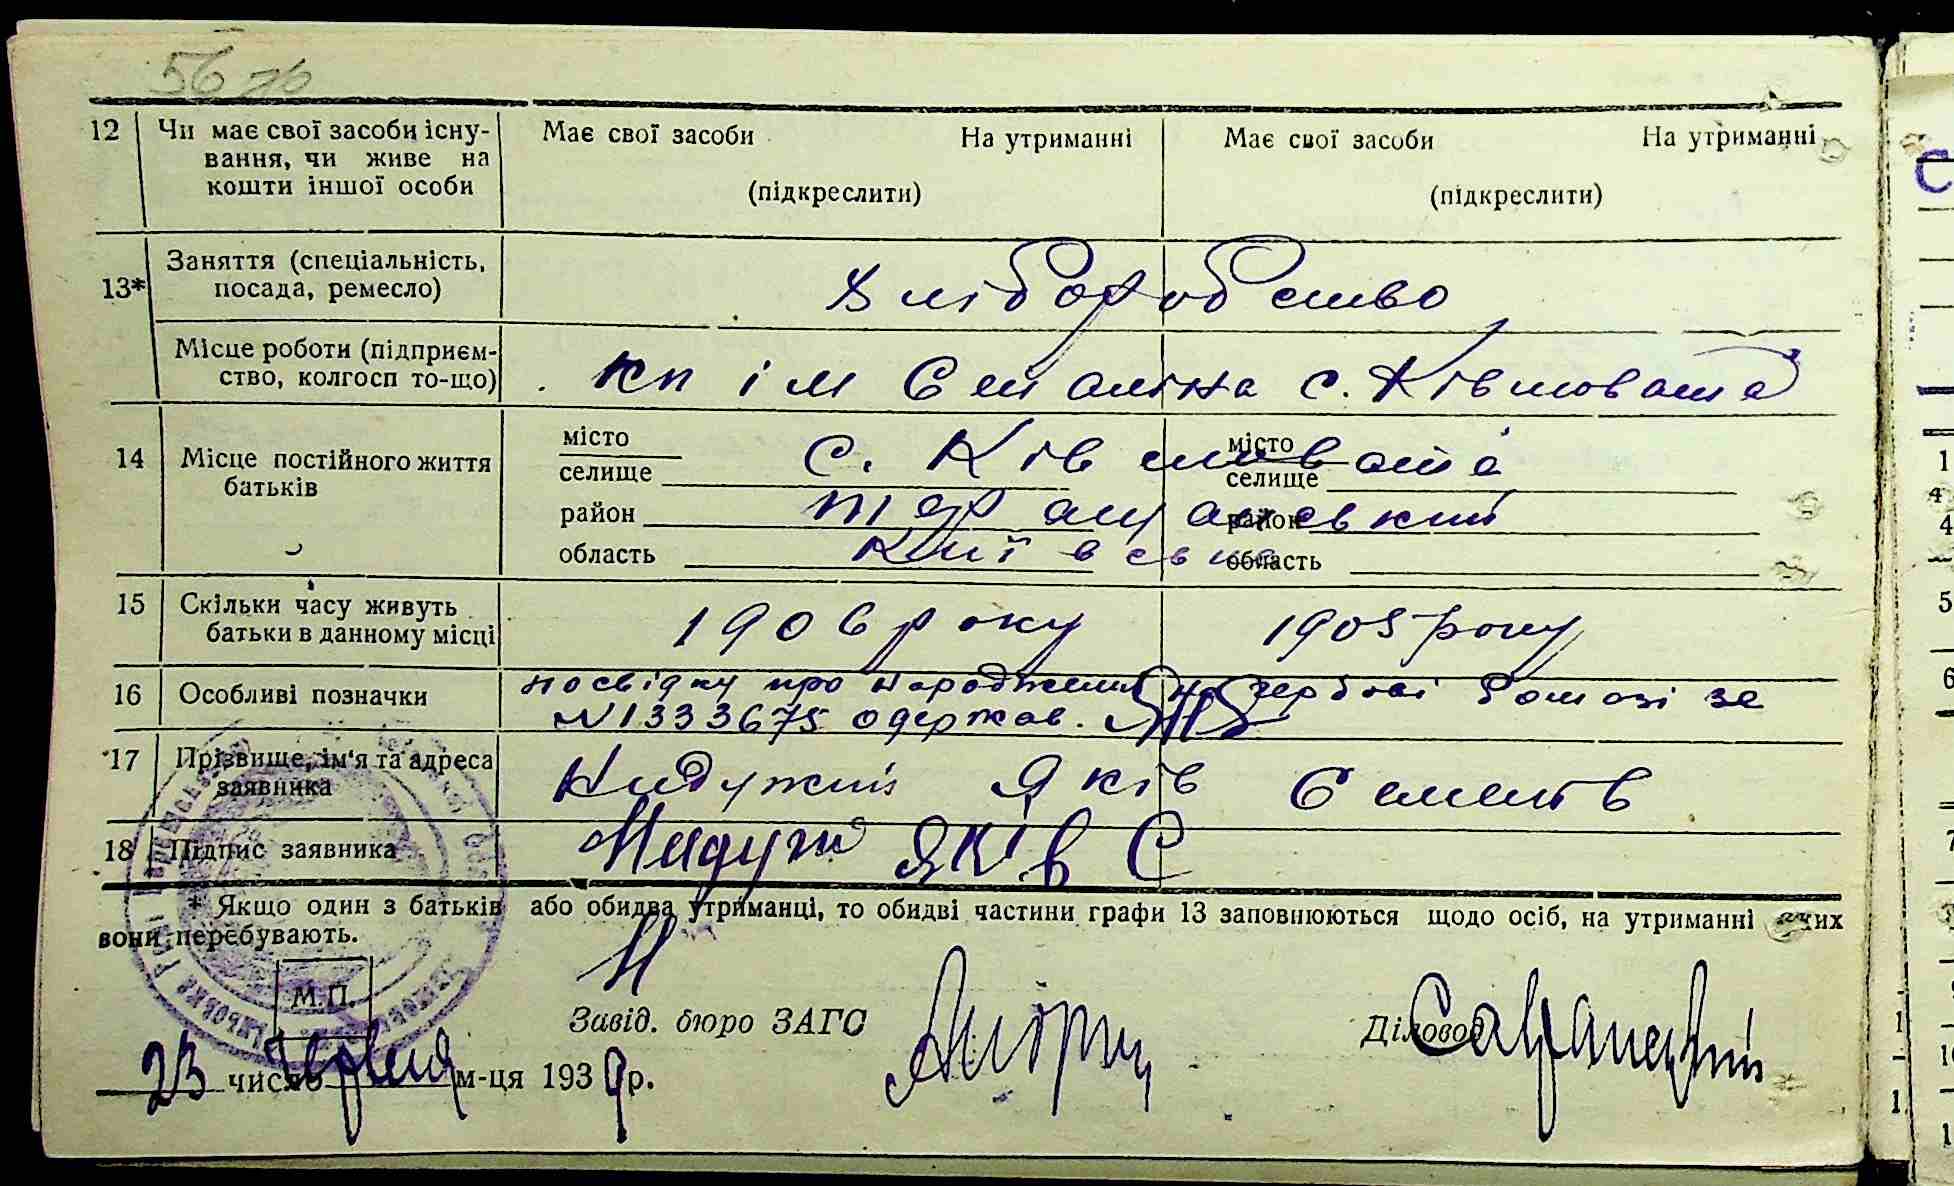 56 зв
12 Чи має свої засоби існу-
вання, чи живе на
кошти іншої особи
Має свої засоби На утриманні Має свої засоби На утриманні
(підкреслити) (підкреслити)
13* Заняття (спеціальність,
посада, ремесло)
Хліборобство
Місце роботи (підприєм-
ство, колгосп то-що)
кп ім Сталіна с. Ківшовата
14 Місце постійного життя
батьків
місто місто
селище с. Ківшовата селище
район Таращанський район
область Київська область
15 Скільки часу живуть
батьки в данному місці
1906 року 1905 року
16 Особливі позначки
посвідку про народження на гербові за
N 1333675 одержав.
17 Прізвище, ім'я та адреса
заявника
Недужий Яків Семенів
18 Підпис заявника
Недуж Яків С
* Якщо один з батьків або обидва утриманці, то обидві частини графи 13 заповнюються щодо осіб, на утриманні яких
вони перебувають.
М.П.
Завід. бюро ЗАГС Діловод
23 число Червня м-ця 1939 р.